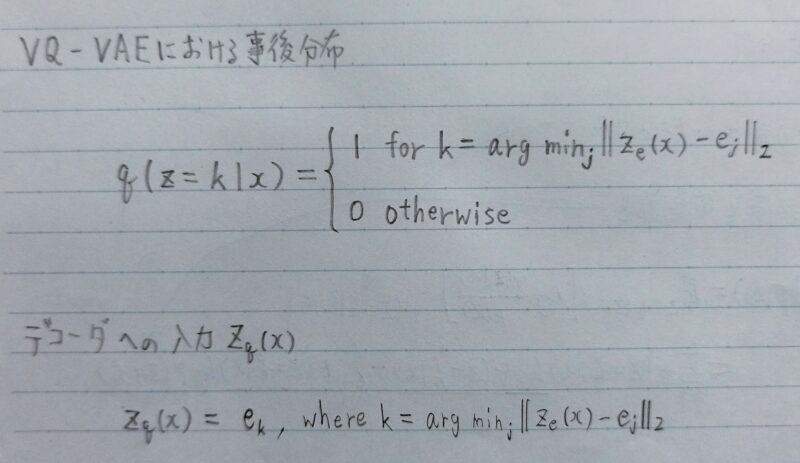 VQ-VAEにおける事後分布
q(z=k|x) = { 1 for k = arg min_j ||z_e(x) - e_j||_2
0 otherwise
デコーダへの入力 z_q(x)
z_q(x) = e_k, where k = arg min_j ||z_e(x) - e_j||_2